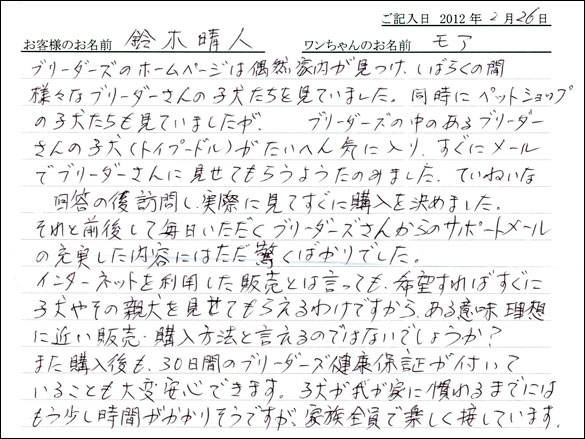 ご記入日 2012年 2月 26日
お客様のお名前 鈴木晴人 ワンちゃんのお名前 モア
ブリーダーズのホームページは偶然家内が見つけ、しばらくの間
様々なブリーダーさんの子犬たちを見ていました。同時にペットショップ
の子犬たちも見ていましたが、ブリーダーズの中のあるブリーダー
さんの子犬(トイプードル)がたいへん気に入り、すぐにメール
でブリーダーさんに見せてもらうようたのみました。ていねいな
回答の後訪問し、実際に見てすぐに購入を決めました。
それと前後して毎日いただくブリーダーズさんからのサポートメール
の充実した内容にはただ驚くばかりでした。
インターネットを利用した販売とは言っても、希望すればすぐに
子犬やその親犬を見せてもらえるわけですから、ある意味理想
に近い販売・購入方法と言えるのではないでしょうか?
また購入後も、30日間のブリーダーズ健康保証が付いて
いることも大変安心できます。子犬が我が家に慣れるまでには
もう少し時間がかかりそうですが、家族全員で楽しく接しています。